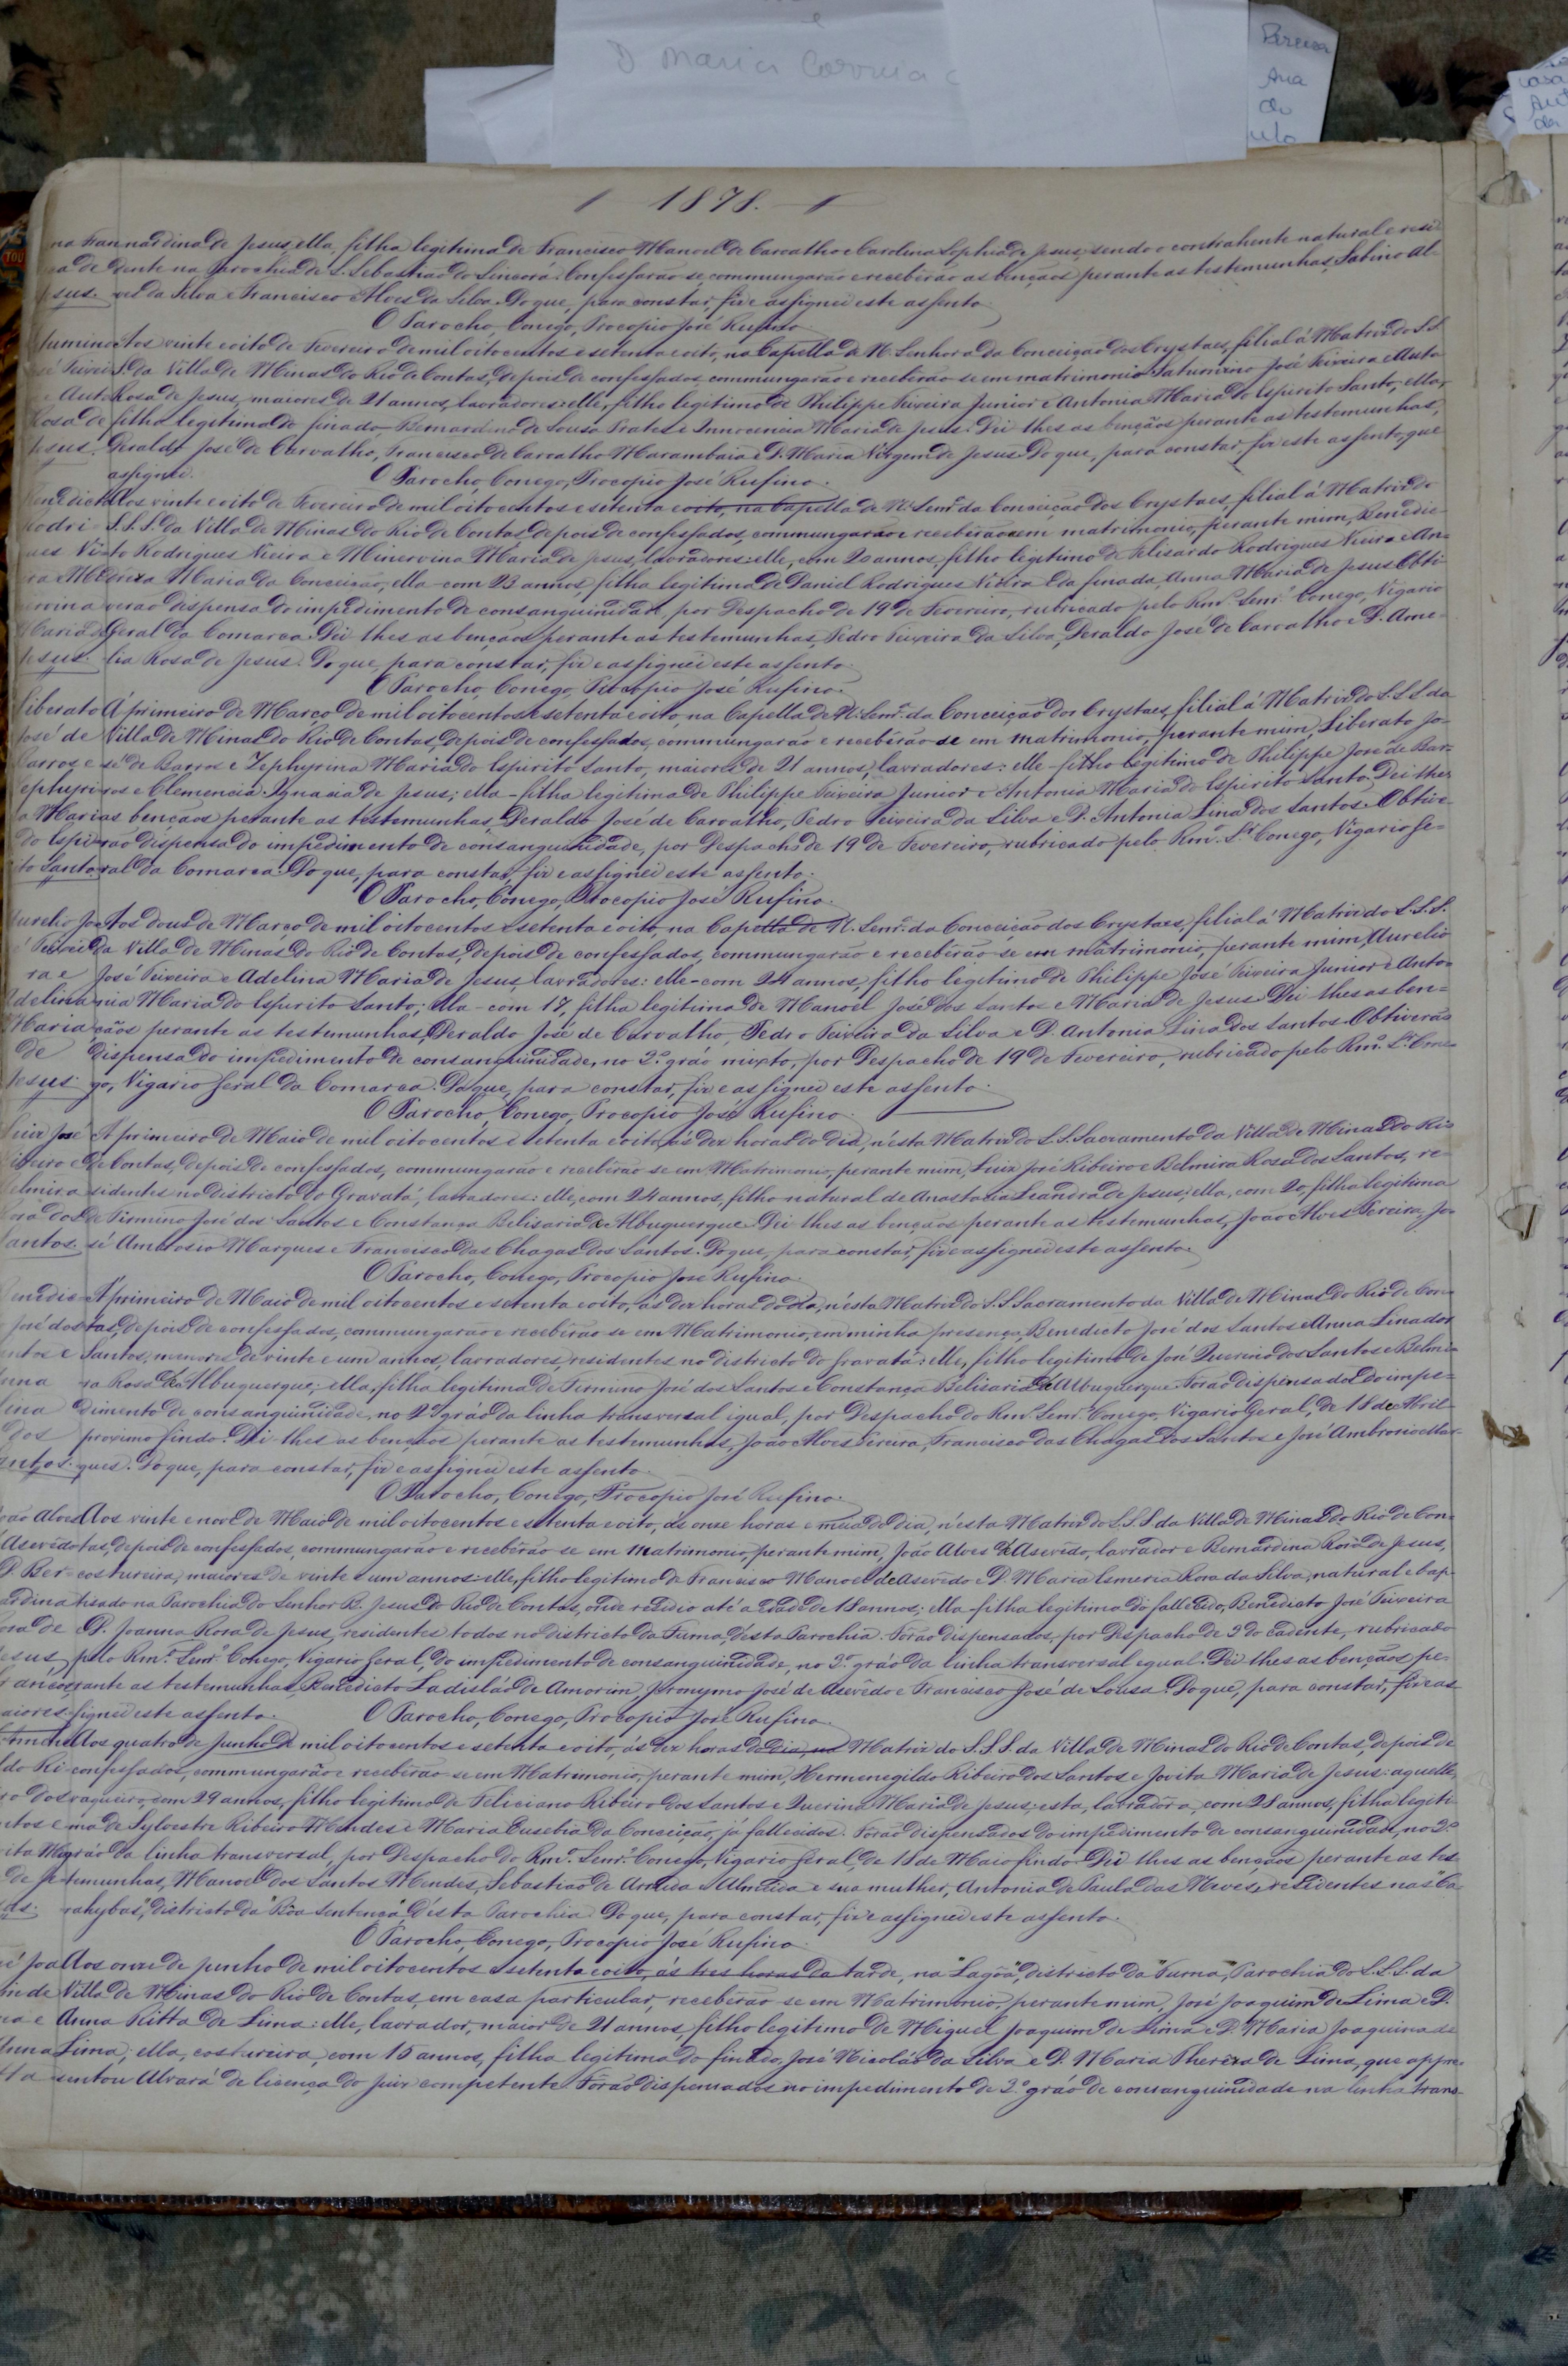 D Maria Correia
Pereira
Ana
do
1878.
nardina de Jesus, ella, filha legitima de Francisco Manoel de Carvalho e Carolina Sophia de Jesus, sendo o contrahente natural e resi-
dente na Parochia de S. Sebastião do Sincorá. Confessarão-se, commungarão e receberão as bençãos perante as testemunhas, Sabino Al-
ves da Silva e Francisco Alves da Silva. Do que, para constar, fiz e assignei este assento.
O Parocho, Conego, Procopio José Rufino
Aos vinte e oito de Fevereiro de mil oitocentos e setenta e oito, na Capella de N. Senhora da Conceição dos Crystaes, filial á Matriz do S.S.
S. da Villa de Minas do Rio de Contas, depois de confessados, commungarão e receberão-se em matrimonio Saturnino José Teixeira e Auta
Rosa de Jesus, maiores de 21 annos, lavradores: elle, filho legitimo de Philippe Teixeira Junior e Antonia Maria do Espirito Santo; ella,
filha legitima do finado Bernardino de Sousa Prates e Innocencia Maria de Jesus. Dei-lhes as bençãos perante as testemunhas,
Deraldo José de Carvalho, Francisco de Carvalho Marambaia e D. Maria Virgem de Jesus. Do que, para constar, fiz este assento, que
assignei. O Parocho, Conego, Procopio José Rufino.
Benedicto Aos vinte e oito de Fevereiro de mil oitocentos e setenta e oito, na Capella de N. Senrª da Conceição dos Crystaes, filial á Matriz do
Rodri- S.S.S. da Villa de Minas do Rio de Contas, depois de confessados, commungarão e receberão-se em matrimonio, perante mim, Benedic-
to Rodrigues Vieira e Minervina Maria de Jesus, lavradores: elle, com 20 annos, filho legitimo de Felisardo Rodrigues Vieira e An-
Maria da Conceição; ella com 23 annos, filha legitima de Daniel Rodrigues Vieira e da finada Anna Maria de Jesus. Obti-
verão dispensa do impedimento de consanguinidade, por Despacho de 19 de Fevereiro, rubricado pelo Rmº Senrº Conego, Vigario
Geral da Comarca. Dei-lhes as bençãos perante as testemunhas, Pedro Teixeira da Silva, Deraldo José de Carvalho e D. Ame-
Jesus. lia Rosa de Jesus. Do que, para constar, fiz e assignei este assento.
O Parocho, Conego, Procopio José Rufino.
Liberato Á primeiro de Março de mil oitocentos e setenta e oito, na Capella de N. Senrª da Conceição dos Crystaes, filial á Matriz do S.S.S. da
José de Villa de Minas do Rio de Contas, depois de confessados, commungarão e receberão-se em matrimonio, perante mim, Liberato Jo-
Barros e sé de Barros e Zephyrina Maria do Espirito Santo, maiores de 21 annos, lavradores: elle - filho legitimo de Philippe José de Bar-
ros e Clemencia Ignacia de Jesus; ella - filha legitima de Philippe Teixeira Junior e Antonia Maria do Espirito Santo. Dei-lhes
as bençãos perante as testemunhas, Deraldo José de Carvalho, Pedro Teixeira da Silva e D. Antonia Lina dos Santos. Obtive-
rão dispensa do impedimento de consanguinidade, por Despacho de 19 de Fevereiro, rubricado pelo Rmº Sr. Conego, Vigario Ge-
ral da Comarca. Do que, para constar, fiz e assignei este assento.
O Parocho, Conego, Procopio José Rufino.
Aos dous de Março de mil oitocentos e setenta e oito, na Capella de N. Senrª da Conceição dos Crystaes, filial á Matriz do S.S.S.
da Villa de Minas do Rio de Contas, depois de confessados, commungarão e receberão-se em matrimonio, perante mim, Aurelio
ra e José Teixeira e Adelina Maria de Jesus, lavradores: elle - com 24 annos, filho legitimo de Philippe José Teixeira Junior e Anto-
Adelina nia Maria do Espirito Santo; ella - com 17, filha legitima de Manoel José dos Santos e Maria de Jesus. Dei-lhes as ben-
Maria çãos perante as testemunhas, Deraldo José de Carvalho, Pedro Teixeira da Silva e D. Antonia Lina dos Santos. Obtiverão
de dispensa do impedimento de consanguinidade, no 2º gráo mixto, por Despacho de 19 de Fevereiro, rubricado pelo Rmº Sr. Cone-
Jesus. go, Vigario Geral da Comarca. Do que, para constar, fiz e assignei este assento.
O Parocho, Conego, Procopio José Rufino.
Luiz José A primeiro de Maio de mil oitocentos e setenta e oito, ás dez horas do dia, n'esta Matriz do S.S. Sacramento da Villa de Minas do Rio
de Contas, depois de confessados, commungarão e receberão-se em Matrimonio, perante mim, Luiz José Ribeiro e Belmira Rosa dos Santos, re-
sidentes no districto do Gravatá, lavradores: elle, com 24 annos, filho natural de Anastacia Leandra de Jesus; ella, com 20, filha legitima
de Firmino José dos Santos e Constança Belisaria de Albuquerque. Dei-lhes as bençãos perante as testemunhas, João Alves Pereira, Jo-
Santos. sé Ambrosio Marques e Francisco das Chagas dos Santos. Do que, para constar, fiz e assignei este assento.
O Parocho, Conego, Procopio José Rufino.
A primeiro de Maio de mil oitocentos e setenta e oito, ás dez horas do dia, n'esta Matriz do S.S. Sacramento da Villa de Minas do Rio de Con-
José dos tas, depois de confessados, commungarão e receberão-se em Matrimonio, em minha presença, Benedicto José dos Santos e Anna Lina dos
Santos, menores de vinte e um annos, lavradores, residentes no districto do Gravatá: elle, filho legitimo de José Querino dos Santos e Belmi-
ra Rosa de Albuquerque; ella, filha legitima de Firmino José dos Santos e Constança Belisaria de Albuquerque. Forão dispensados do impe-
dimento de consanguinidade, no 2º gráo da linha transversal igual, por Despacho do Rmº Senrº Conego, Vigario Geral, de 18 de Abril
dos proximo findo. Dei-lhes as bençãos perante as testemunhas, João Alves Pereira, Francisco das Chagas dos Santos e José Ambrosio Mar-
ques. Do que, para constar, fiz e assignei este assento.
O Parocho, Conego, Procopio José Rufino.
Aos vinte e nove de Maio de mil oitocentos e setenta e oito, ás onse horas e meia do dia, n'esta Matriz do S.S.S. da Villa de Minas do Rio de Con-
tas, depois de confessados, commungarão e receberão-se em Matrimonio, perante mim, João Alves de Asevêdo, lavrador e Bernardina Rosa de Jesus,
D. Ber- costureira, maiores de vinte e um annos: elle, filho legitimo de Francisco Manoel de Asevêdo e D. Maria Rosa da Silva, natural e bap-
tisado na Parochia do Senhor B. Jesus do Rio de Contas, onde residio até a edade de 18 annos; ella - filha legitima do fallecido, Benedicto José Teixeira
e D. Joanna Rosa de Jesus, residentes todos no districto da Furna, d'esta Parochia. Forão dispensados, por Despacho de 2 do cadente, rubricado
pelo Rmº Senrº Conego, Vigario Geral, do impedimento de consanguinidade, no 2º gráo da linha transversal egual. Dei-lhes as bençãos pe-
rante as testemunhas, Benedicto Ladislão de Amorim, Jeronymo José de Asevêdo e Francisco José de Sousa. Do que, para constar, fiz e as-
signei este assento. O Parocho, Conego, Procopio José Rufino.
Aos quatro de Junho de mil oitocentos e setenta e oito, ás dez horas do dia, na Matriz do S.S.S. da Villa de Minas do Rio de Contas, depois de
confessados, commungarão e receberão-se em Matrimonio, perante mim, Hermenegildo Ribeiro dos Santos e Jovita Maria de Jesus: aquelle,
vaqueiro, com 29 annos, filho legitimo de Feliciano Ribeiro dos Santos e Querina Maria de Jesus; esta, lavradôra, com 28 annos, filha legiti-
ma de Sylvestre Ribeiro Mendes e Maria Eusebia da Conceição, já fallecidos. Forão dispensados do impedimento de consanguinidade, no 2º
gráo da linha transversal, por Despacho do Rmº Senrº Conego, Vigario Geral, de 18 de Maio findo. Dei-lhes as bençãos perante as tes-
temunhas, Manoel dos Santos Mendes, Sebastião de Arruda e Almeida e sua mulher, Antonia de Paula das Neves, residentes nas "Ca-
rahybas", districto da "Bôa Sentença", d'esta Parochia. Do que, para constar, fiz e assignei este assento.
O Parocho, Conego, Procopio José Rufino.
Aos onze de junho de mil oitocentos e setenta e oito, ás tres horas da tarde, na "Lagôa", districto da "Furna", Parochia do S.S.S. da
Villa de Minas do Rio de Contas, em casa particular, receberão-se em Matrimonio, perante mim, José Joaquim de Lima e D.
Anna Ritta de Lima: elle, lavrador, maior de 21 annos, filho legitimo de Miguel Joaquim de Lima e D. Maria Joaquina de
Lima; ella, costureira, com 15 annos, filha legitima do finado, José Nicolão da Silva e D. Maria Thereza de Lima, que appre-
sentou Alvará de licença do Juiz competente. Forão dispensados no impedimento de 2º gráo de consanguinidade na linha trans-